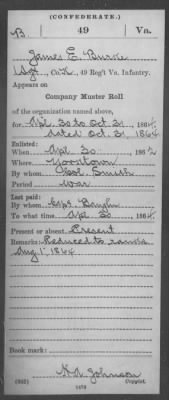 (CONFEDERATE.)
B 49 Va.
James E. Burke
Sgt, Co. K, 49 Reg't Va. Infantry.
Appears on
Company Muster Roll
of the organization named above,
for Apl 30 to Oct 31, 1864.
dated Oct. 31, 1864
Enlisted:
When Apl 30, 1862
Where Yorktown
By whom Col. Smith
Period War
Last paid:
By whom Capt.
To what time Apl 30, 1864.
Present or absent Present
Remarks: Reduced to ranks
Aug 1" 1864
Book mark:
Johnson
(642) Copyist.